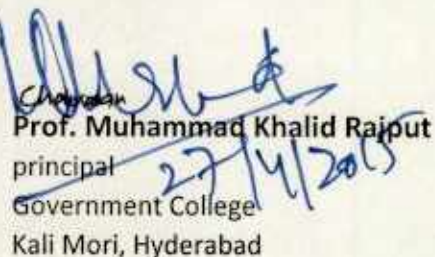 Chairman
Prof. Muhammad Khalid Rajput
27/4/2015
principal
Government College
Kali Mori, Hyderabad